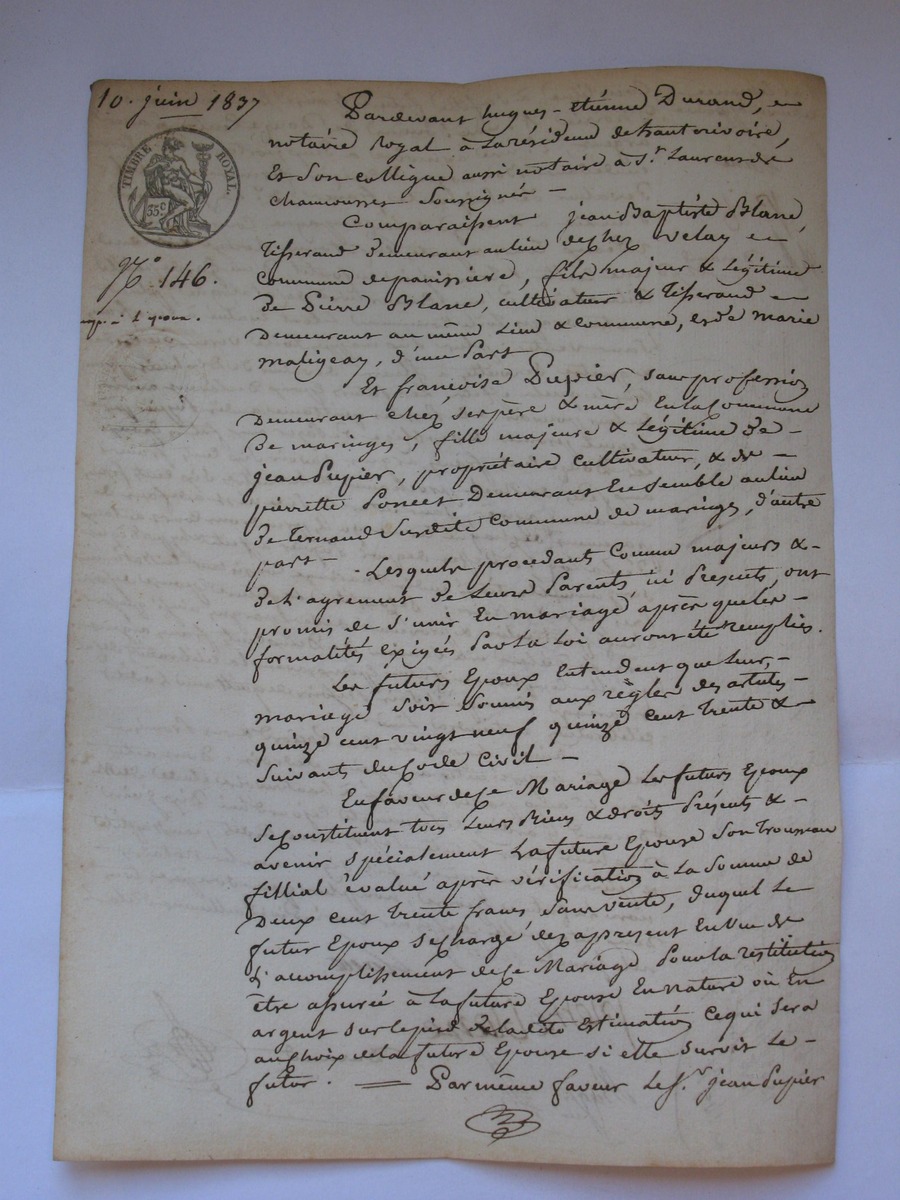 10. juin 1837
TIMBRE ROYAL.
35 c
N.° 146.
Pardevant hugues-etienne Durand,
notaire royal à la résidence de hauterivoire,
Et Son collègue aussi notaire à S.t Laurent de
chamousset Soussignés —
Comparaissent jean Baptiste Blanc,
tisserand demeurant au lieu de chez velay en
commune de panissière, fils majeur & légitime
de Pierre Blanc, cultivateur & tisserand
demeurant au même lieu & commune, et de marie
maligeay, d'une Part
Et francoise Pupier, sans profession
demeurant chez ses père & mère En la Commune
de maringes, fille majeure & légitime de —
jean Pupier, propriétaire cultivateur, & de —
pierrette Poncet demeurant Ensemble au lieu
de ternaud Susdite Commune de maringes, d'autre
part — . Lesquels procédants Comme majeurs & -
de l'agrement de Leurs Parents ici Présents, ont
promis de s'unir En mariage après que les —
formalités exigées Par la Loi auront été remplies.
Les futurs Epoux Entendent que leur —
mariage soit Soumis aux règles des articles —
quinze cent vingt neuf quinze cent trente &
suivants du Code Civil —
En faveur de ce Mariage Les futurs Epoux
se Constituent tous Leurs Biens & droits Présents & -
avenir spécialement La future Epouse Son Trousseau
fillial évalué après vérification à La Somme de
Deux cent trente francs Sans vente, duquel Le
futur Epoux Se charge dès apresent En Vue de
L'accomplissement de ce Mariage Pour la restitution
être assurée à La future Epouse En nature où En
argent sur le pied de la dite Estimation Ce qui Sera
au choix de la future Epouse si elle survit Le —
futur. — Par même faveur Le S.r jean Pupier